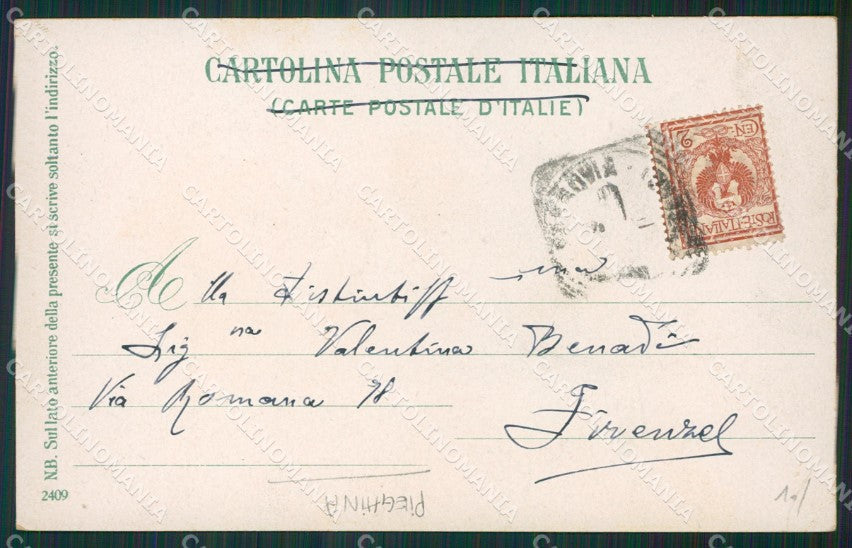 CARTOLINA POSTALE ITALIANA
(CARTE POSTALE D'ITALIE)
CEN. 2
POSTE ITALIANE
FERROVIA
A lla Distintiss ima
Sig na Valentina Benadì
Via Romana 78
Firenze
N.B. Sul lato anteriore della presente si scrive soltanto l'indirizzo.
2409
PIEGHINA
CARTOLINOMANIA